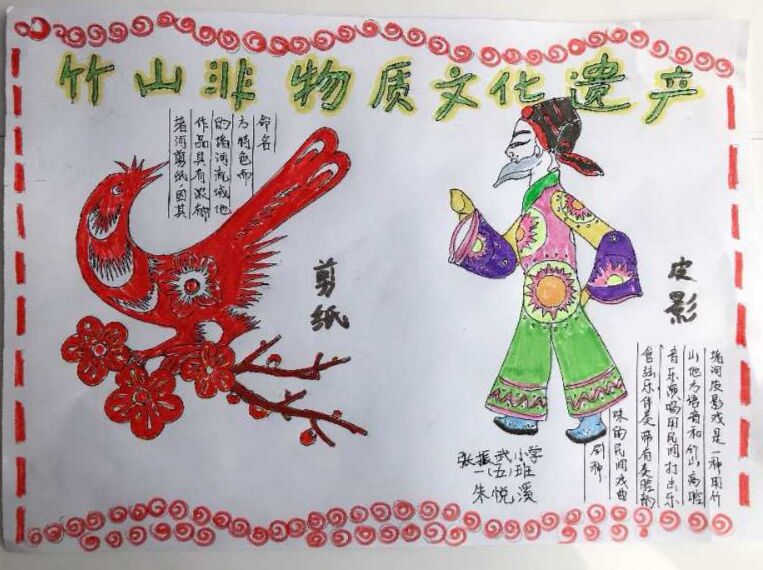 竹山非物质文化遗产
堵河剪纸,因其
作品具有浓郁
的堵河流域地
方特色而
命名
剪纸
皮影
堵河皮影戏是一种用竹
山地方语言和竹山高腔
音乐演唱用民间打击乐
管弦乐伴奏带有麦腔韵
味的民间戏曲
剧种
张振武小学
一(五)班
朱悦溪